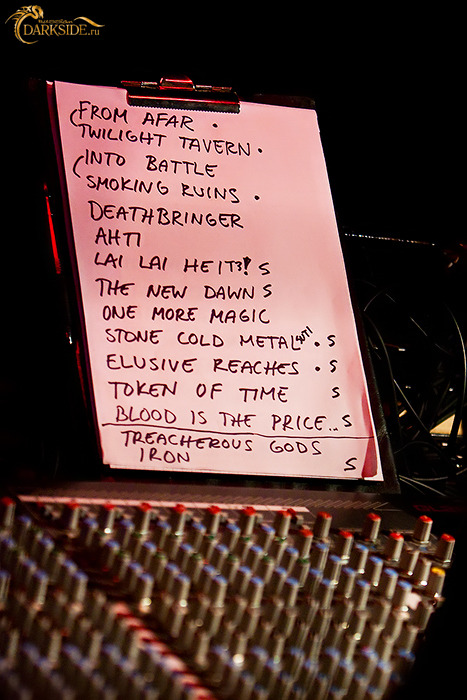 DARKSIDE.ru
(FROM AFAR .
TWILIGHT TAVERN .
(INTO BATTLE
SMOKING RUINS .
DEATHBRINGER
AHTI
LAI LAI HEI!! S
THE NEW DAWN S
ONE MORE MAGIC
STONE COLD METAL . S
ELUSIVE REACHES . S
TOKEN OF TIME S
BLOOD IS THE PRICE... S
TREACHEROUS GODS
IRON S